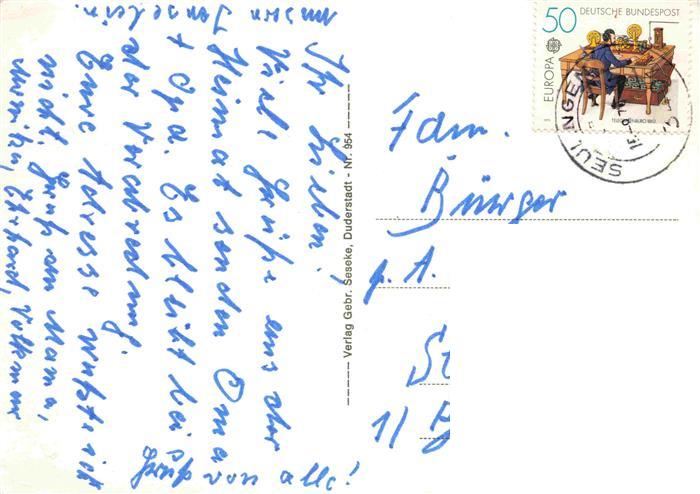 Ihr Lieben!
Viele Grüße aus der
Heimat senden Oma
+ Opa. Es bleibt bei
der Vorbereitung.
Eure Adresse wußte ich
nicht. Gruß an Mama,
Eckhard, Volkmar
Gruß von alle!
Verlag Gebr. Seseke, Duderstadt - Nr. 954
50 DEUTSCHE BUNDESPOST
EUROPA
SEULINGEN
Fam.
Bürger
p. A.
1/